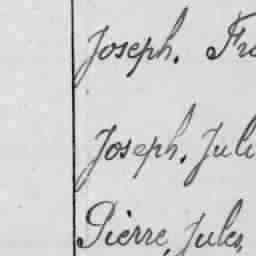 Joseph. Fra
Joseph. Juli
Pierre, Jules,